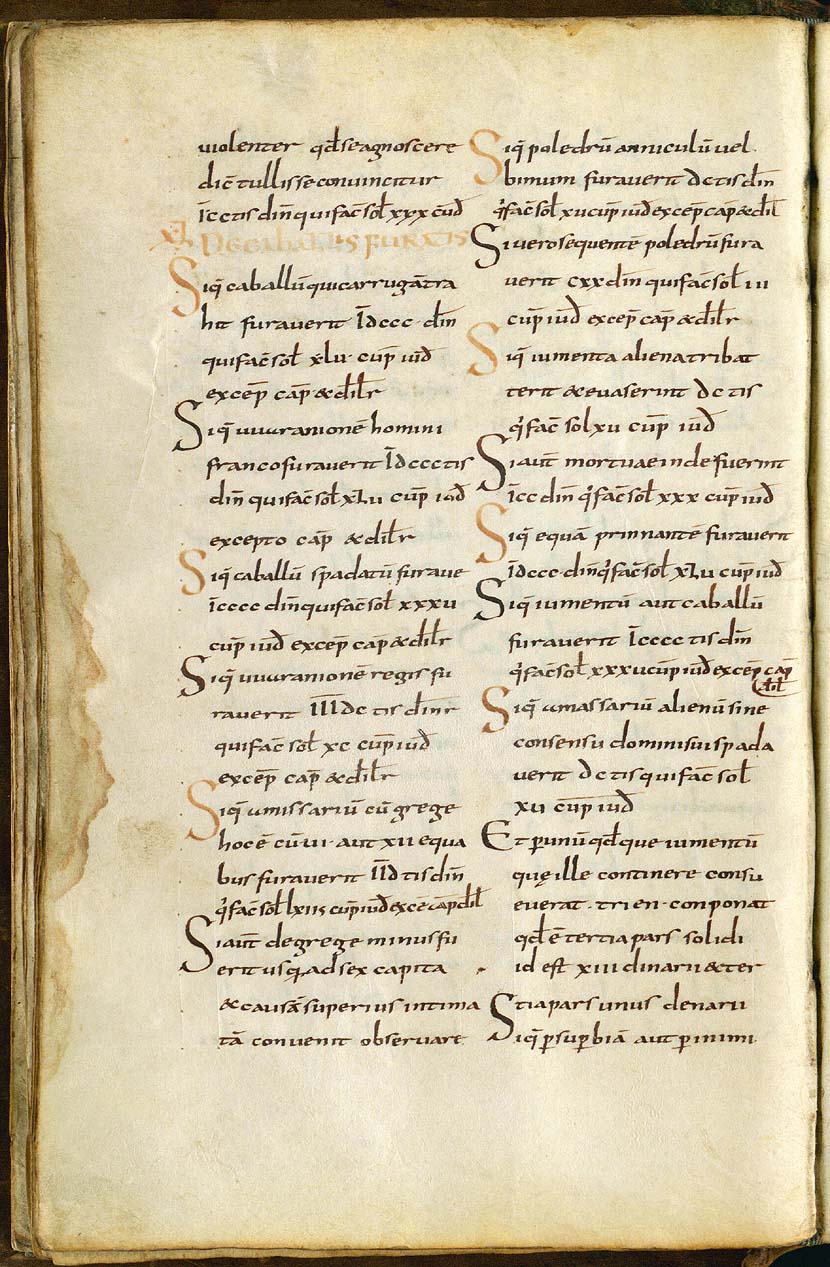 violenter qd̄ se agnoscere
dic̄ tullisse convincitur
īcc tis din̄ qui fac̄ sol̄ xxx cūd
De caballis furatis
Siq̄ caballū qui carruga tra
hit furaverit īdccc din̄
qui fac̄ sol̄ xlv cūp iūd
excep̄ cap̄ & dil̄r
Siq̄ uuaranionē homini
franco furaverit īdccc tis
din̄ qui fac̄ sol̄ xlv cup̄ iūd
excepto cap̄ & dil̄r
Siq̄ caballū spadatū furave
īcccc din̄ qui fac̄ sol̄ xxxv
cup̄ iūd excep̄ cap̄ & dil̄r
Siq̄ uuaranionē regis fu
raverit īīīdc tis din̄r
qui fac̄ sol̄ xc cūp iūd
excep̄ cap̄ & dil̄r
Siq̄ amissariū cū grege
hoc ē cū vi · aut xii equa
bus furaverit īīd tis din̄
q̄ fac̄ sol̄ lxiis cūp iūd exce cap̄ dil̄
Si aut̄ de grege minus fu
erit usq̄ ad sex capita
& causā superius intima
tā convenit observare
Siq̄ poledrū anniculū vel
bimum furaverit dc tis din̄
q̄ fac̄ sol̄ xv cup̄ iūd excep̄ cap̄ & dil̄
Si vero sequentē poledrū fura
verit cxx din̄ qui fac̄ sol̄ iii
cup̄ iūd excep̄ cap̄ & dil̄r
Siq̄ iumenta aliena tribat
terit & evaserint dc tis
q̄ fac̄ sol xv cup̄ iūd
Si aut̄ mortuae inde fuerint
īcc din̄ q̄ fac̄ sol̄ xxx cup̄ iūd
Siq̄ equā prinnantē furaverit
īdccc din̄ q̄ fac̄ sol̄ xlv cup̄ iūd
Siq̄ iumentū aut caballū
furaverit īcccc tis din̄
q̄ fac̄ sol̄ xxxv cup̄ iūd excep̄ cap̄
dil̄
Siq̄ amassariū alienū sine
consensu domini sui spada
verit dc tis qui fac̄ sol̄
xv cup̄ iūd
Et p̱ unū qd̄que iumentū
quę ille continere consu
everat · trien · conponat
qd̄ ē tertia pars solidi
id est xiii dinarii & ter
tia pars unus denarii
Siq̄ p̱ sup̱biā aut p̱ inimi